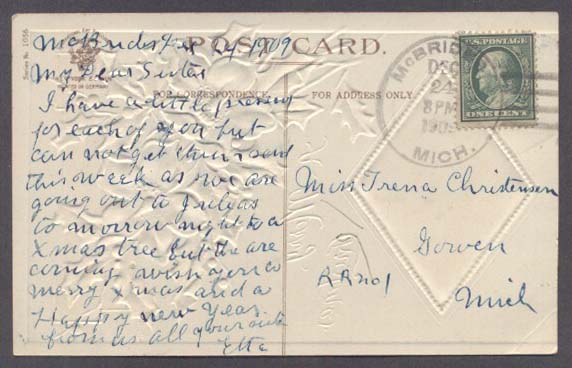 Series No. 1056
McBrides Dec 24 1909
POST CARD.
My Dear Sister
FOR CORRESPONDENCE.
FOR ADDRESS ONLY.
I have a little present
for each of you but
can not get them
this week as we are
going out to
to morrow night to a
Xmas tree but the are
coming wish you a
merry x mas and a
Happy new Year.
from us all your
Etta
McBRIDE
DEC
24
8 PM
1909
MICH.
U.S. POSTAGE
ONE CENT
Miss Trena Christensen
Gowen
RR no 1
Mich